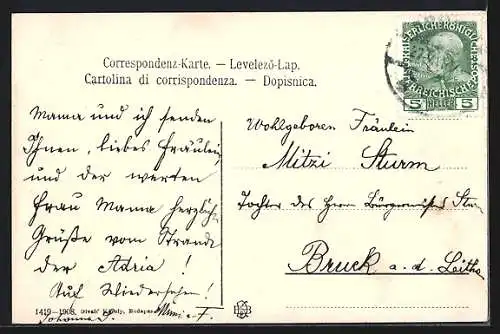 Correspondenz-Karte. — Levelező-Lap.
Cartolina di corrispondenza. — Dopisnica.
KAISERLICHE KÖNIGLICHE
ÖSTERREICHISCHE
5 HELLER 5
Mama und ich senden
Ihnen, liebes Fräulein
und der werten
Frau Mama herzliche
Grüße vom Strande
der Adria!
Auf Wiedersehen!
Johanna F. Mimi F.
Wohlgeboren Fräulein
Mitzi Sturm
Tochter des Herrn Bürgermeister Sturm
Bruck a. d. Leitha
1419—1908. Károly, Budapest